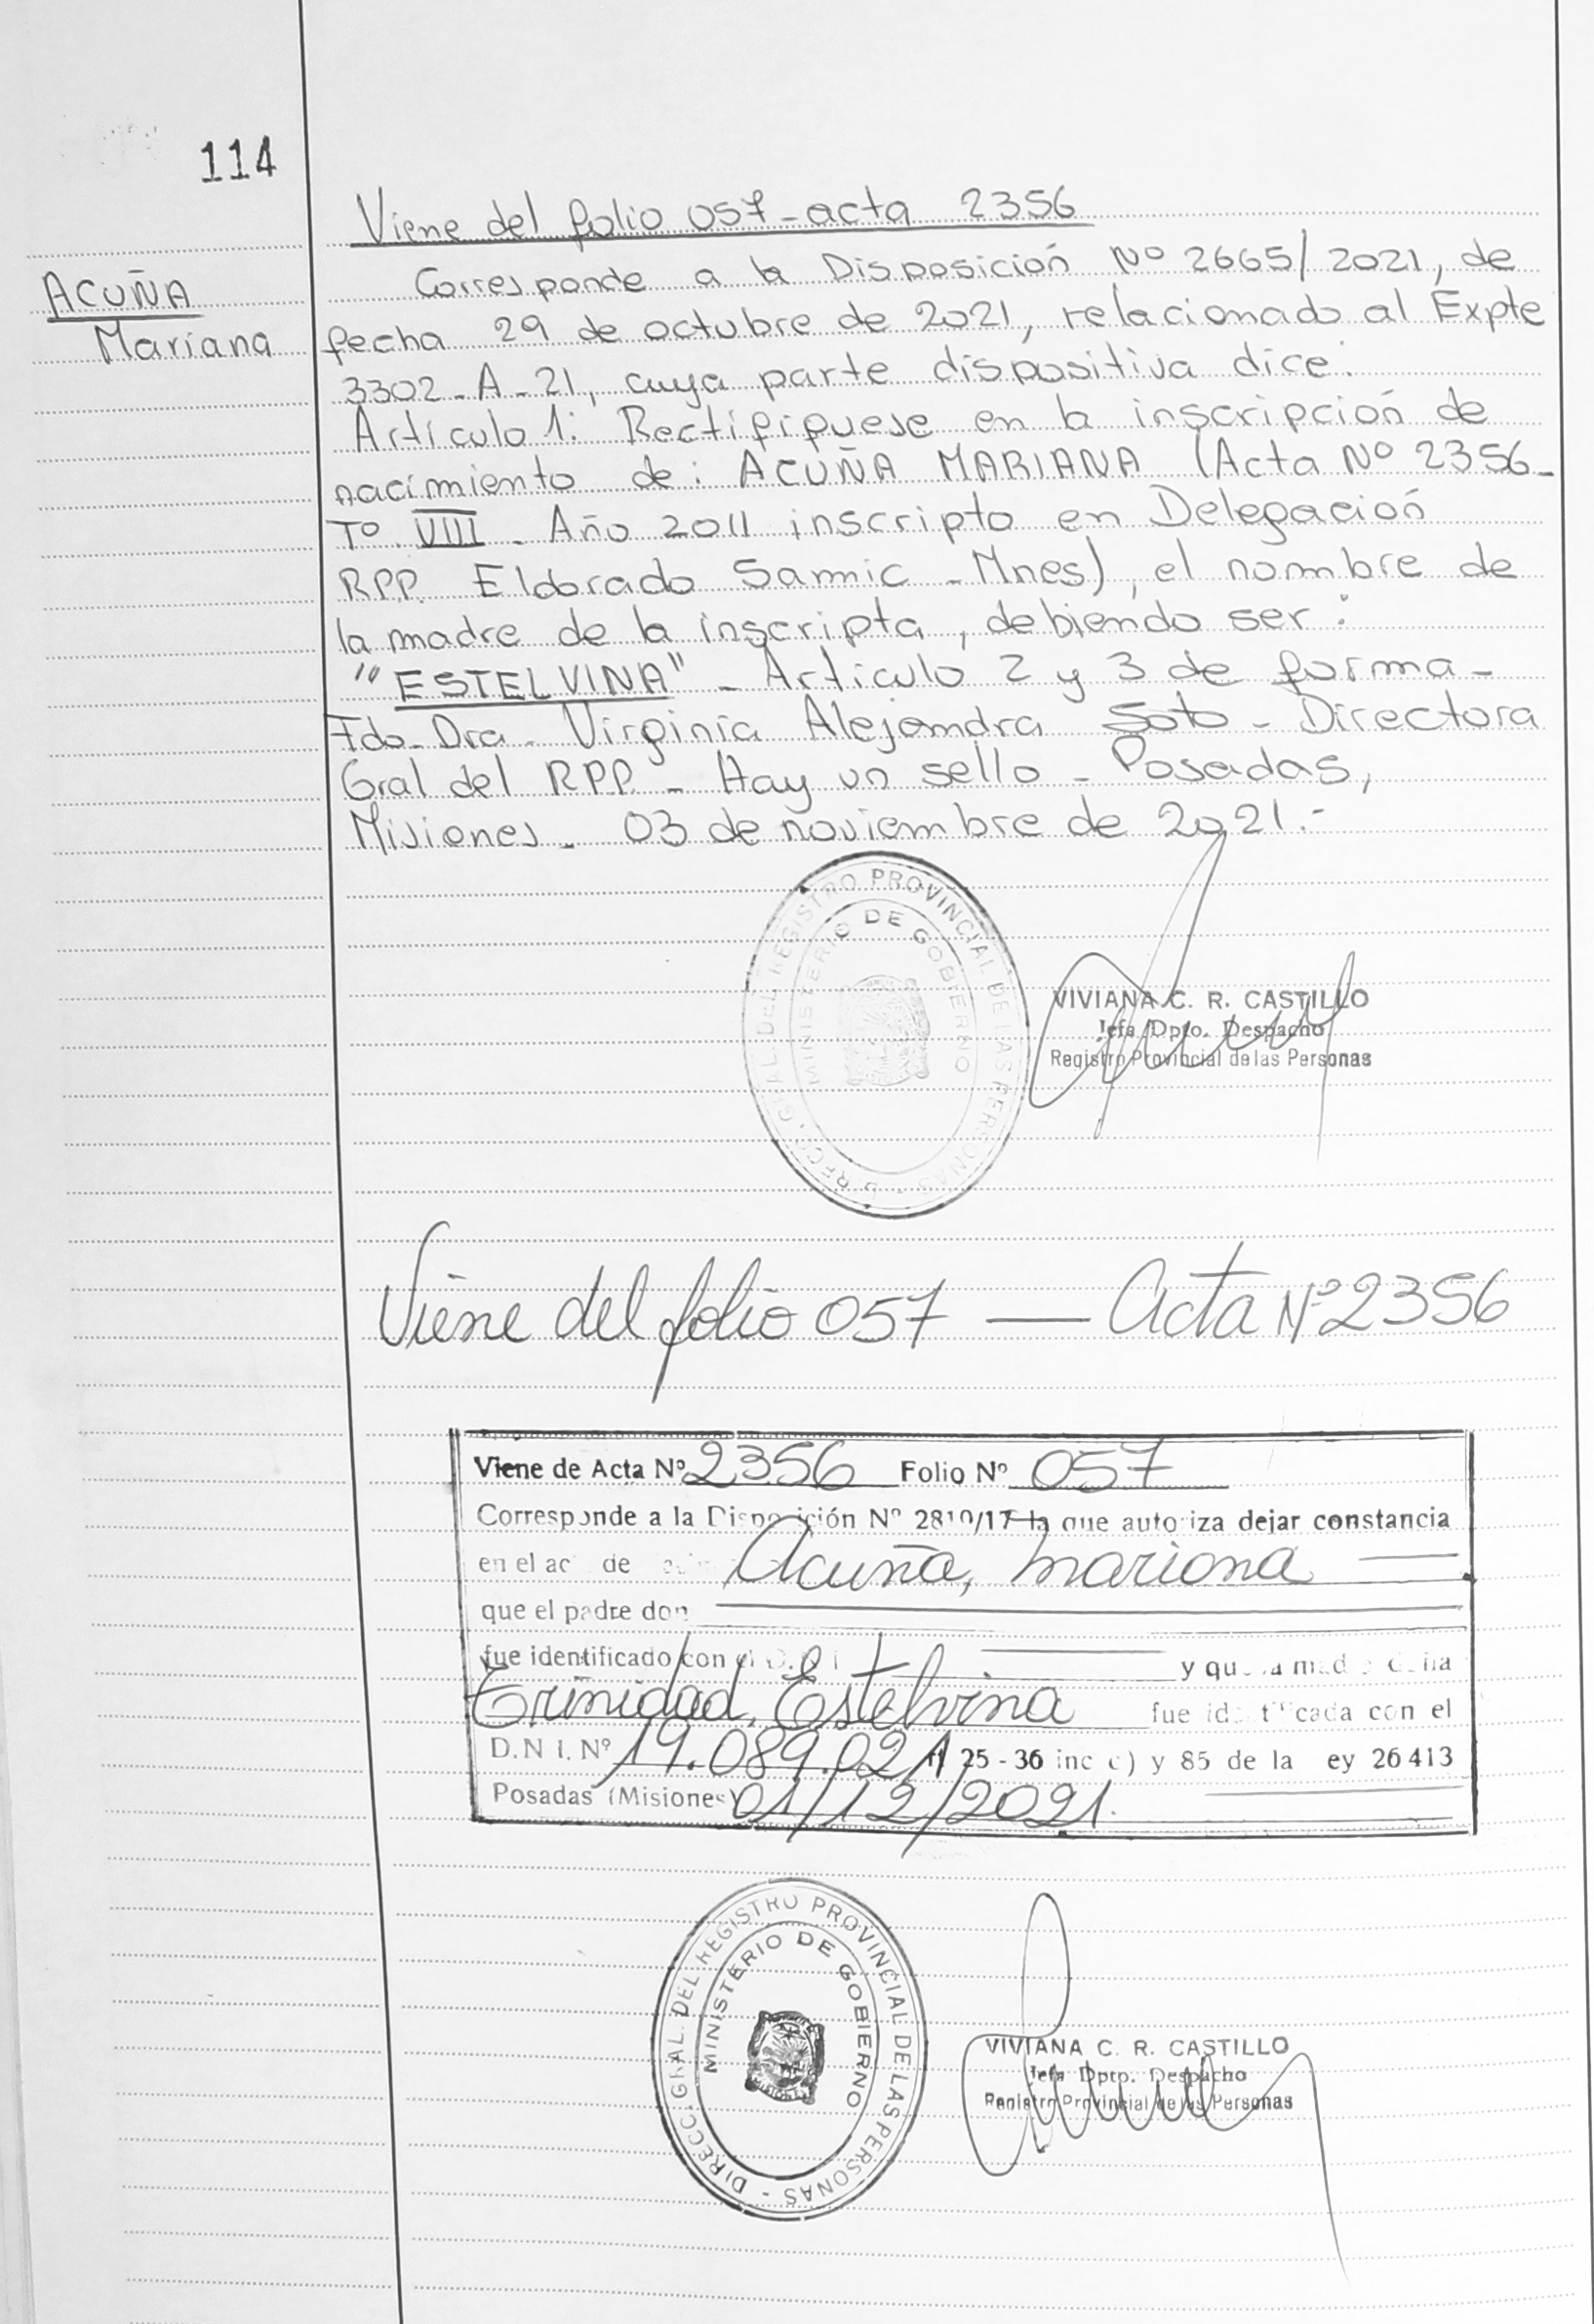 114
Viene del folio 057-acta 2356
ACUÑA
Mariana
Corresponde a la Disposición Nº 2665/2021, de
fecha 29 de octubre de 2021, relacionado al Expte
3302-A-21, cuya parte dispositiva dice:
Artículo 1: Rectifíquese en la inscripción de
nacimiento de: ACUÑA MARIANA (Acta Nº 2356-
Tº VIII - Año 2011 inscripto en Delegación
RPP. Eldorado Samic - Mnes), el nombre de
la madre de la inscripta, debiendo ser:
"ESTELVINA" - Artículo 2 y 3 de forma -
Fdo- Dra- Virginia Alejandra Soto - Directora
Gral del RPP - Hay un sello - Posadas,
Misiones - 03 de noviembre de 2021.-
DIRECC. GRAL. DEL REGISTRO PROVINCIAL DE LAS PERSONAS -
MINISTERIO DE GOBIERNO
VIVIANA C. R. CASTILLO
Jefa Dpto. Despacho
Registro Provincial de las Personas
Viene del folio 057 — Acta Nº 2356
Viene de Acta Nº 2356 Folio Nº 057
Corresponde a la Disposición Nº 2810/17 la que autoriza dejar constancia
en el ac de Acuña, Mariana —
que el padre don —
fue identificado con el D.N.I — y que la madre doña
Trinidad, Estelvina fue identificada con el
D.N.I. Nº 19.089.021 25-36 inc c) y 85 de la ey 26413
Posadas (Misiones) 01/12/2021.
DIRECC. GRAL. DEL REGISTRO PROVINCIAL DE LAS PERSONAS -
MINISTERIO DE GOBIERNO
VIVIANA C. R. CASTILLO
Jefa Dpto. Despacho
Registro Provincial de las Personas